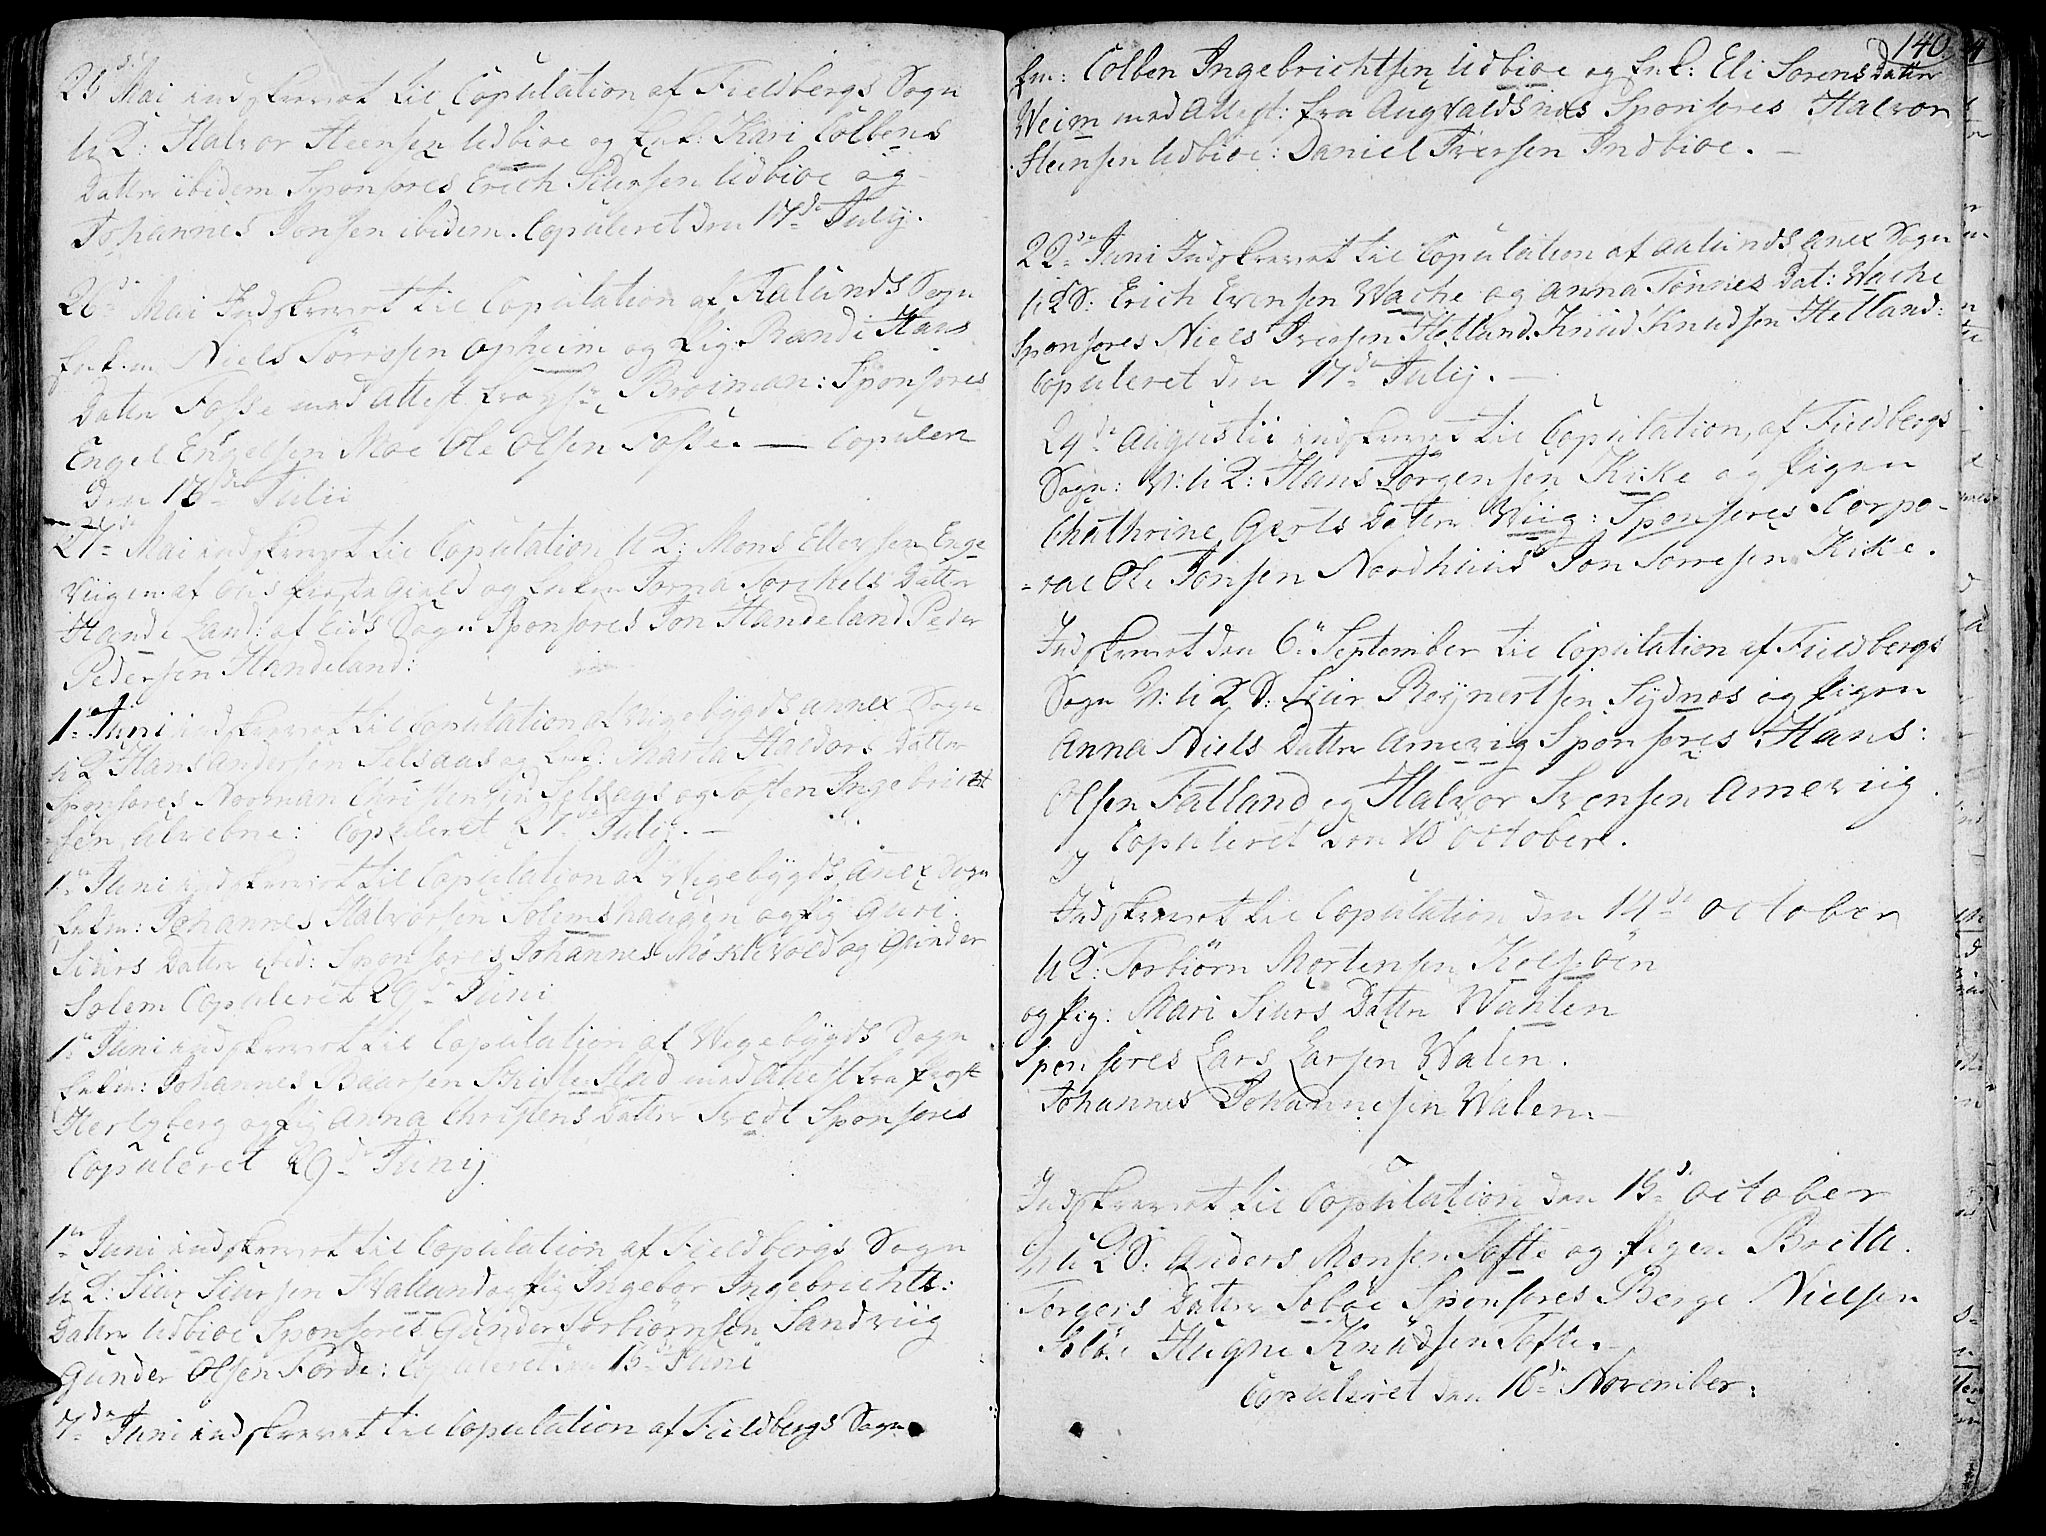 Mai indskrevet til Copulation af Fieldbergs Sogn
Halvor Steensen Udbioe og Enk: Kari Colbens
Datter ibidem Sponsores Erich Siursen Udbioe og
Johannes Jonsen ibidem. Copuleret den 17de Julij.
26de Mai Indskrevet til Copulation af Aalunds Sogn
Enk.m Niels Tørrisen Opheim og Pig Randi Hans
Datter Fosse med Attest Sponsores
Engel Engelsen Moe Ole Olsen Fosse. — Copuler
den Julii
27de Mai indskrevet til Copulation Mons Ellersen Enge
Viigen af gield og Torkels Datter
Hande Land: af Eids Sogn Sponsores Jon Handeland Peder
Pedersen Handeland:
1te Juni indskrevet til Copulation af Wigebygds annex Sogn
Hans Andersen Selsaas og Marta Haldors Datter
Sponsores Noorman Christensen Selsaas og Tosten Ingebrict
sen Ulvebne: Copuleret 27de Julij. —
1te Juni indskrevet til Copulation af Wigebygds anex Sogn
Enkm: Johannes Halvorsen Solemshaugen og Pig Guri
Siurs Datter ibid: Sponsores Johannes Mokle Vold og Gunder
Solem Copuleret 29de Juni
1te Juni indskrevet til Copulation af Wigebygds Sogn
Enkm: Johannes Baarsen med Attest fra
Hertzberg og Pig Anna Christens Datter Tvedt Sponsores
Copuleret 29de Junij
1te Juni indskrevet til Copulation af Fieldbergs Sogn
Siur Siursen Waland og Pig Ingebor Ingebrichts:
Datter Udbioe Sponsores Gunder Torbiornsen Sandviig
Gunder Olsen Førde: Copuleret den Juni
7de Juni indskrevet til Copulation af Fieldbergs Sogn
140
Em: Colben Ingebrichtsen Udbioe og Enk: Eli Sorens Datter
Weim med Attest: fra Augvaldsnæs Sponsores Halvor
Steensen Udbioe: Daniel Iversen Indbioe. —
22de Juni Indskrevet til Copulation af Aalunds Anex Sogn
Erich Evensen Wache og Anna Tønnes Dat: Wache
Sponsores Niels Iversen Hetland. Knud Knudsen Hetland:
Copuleret den 17de Julij. —
29de Augustii indskrevet til Copulation, af Fieldbergs
Sogn: Hans Jørgensen Kike og Pigen
Chathrine Gerts Datter Wiig: Sponsores Corpo-
-ral Ole Jonsen Nordhuus Jon Kike.
Indskrevet den 6te September til Copulation af Fieldbergs
Sogn Siur Reynertsen Sydnes og Pigen
Anna Niels Datter Amevig Sponsores Hans:
Olsen Fatland og Halvor Svensen Ameviig.
Copuleret den 10 October.
Indskrevet til Copulation den 14de October
Torbiørn Mortensen
og Pig: Mari Siurs Datter Wahlen
Sponsores Lars Larsen Walen.
Johannes Johannesen Walen. —
Indskrevet til Copulation den 15de October
Anders Monsen Tofte og Pigen Britte.
Torgers Datter Soløe Sponsores Berge Nielsen
Soløe Hugne Knudsen Tofte. —
Copuleret den 16de November: